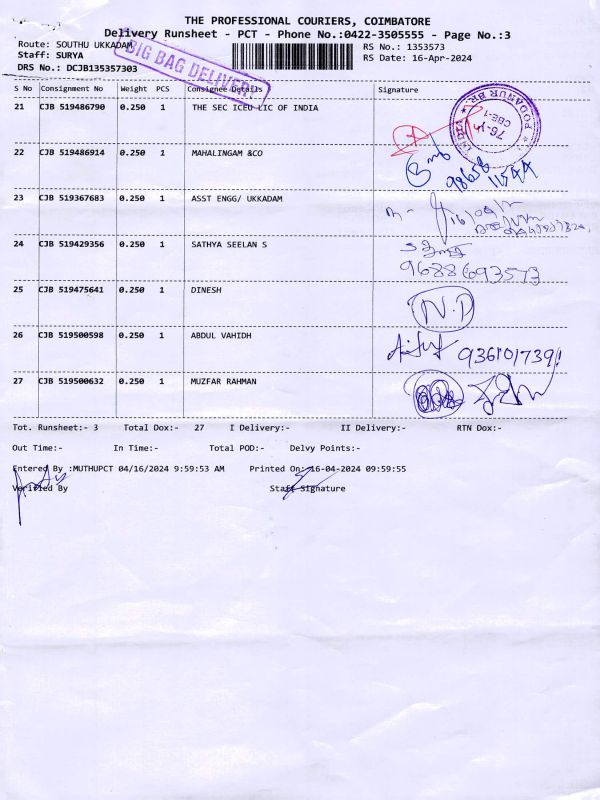 THE PROFESSIONAL COURIERS, COIMBATORE
Delivery Runsheet - PCT - Phone No.:0422-3505555 - Page No.:3
Route: SOUTHU UKKADAM
RS No.: 1353573
Staff: SURYA
RS Date: 16-Apr-2024
DRS No.: DCJB135357303
BIG BAG DELIVERY
S No Consignment No Weight PCS Consignee Details Signature
21 CJB 519486790 0.250 1 THE SEC ICEU LIC OF INDIA
PODANUR BR.
CBE-1
22 CJB 519486914 0.250 1 MAHALINGAM &CO
23 CJB 519367683 0.250 1 ASST ENGG/ UKKADAM
24 CJB 519429356 0.250 1 SATHYA SEELAN S
25 CJB 519475641 0.250 1 DINESH
N.D
26 CJB 519500598 0.250 1 ABDUL VAHIDH
27 CJB 519500632 0.250 1 MUZFAR RAHMAN
Tot. Runsheet:- 3 Total Dox:- 27 I Delivery:- II Delivery:- RTN Dox:-
Out Time:- In Time:- Total POD:- Delvy Points:-
Entered By :MUTHUPCT 04/16/2024 9:59:53 AM Printed On:16-04-2024 09:59:55
Verified By Staff Signature